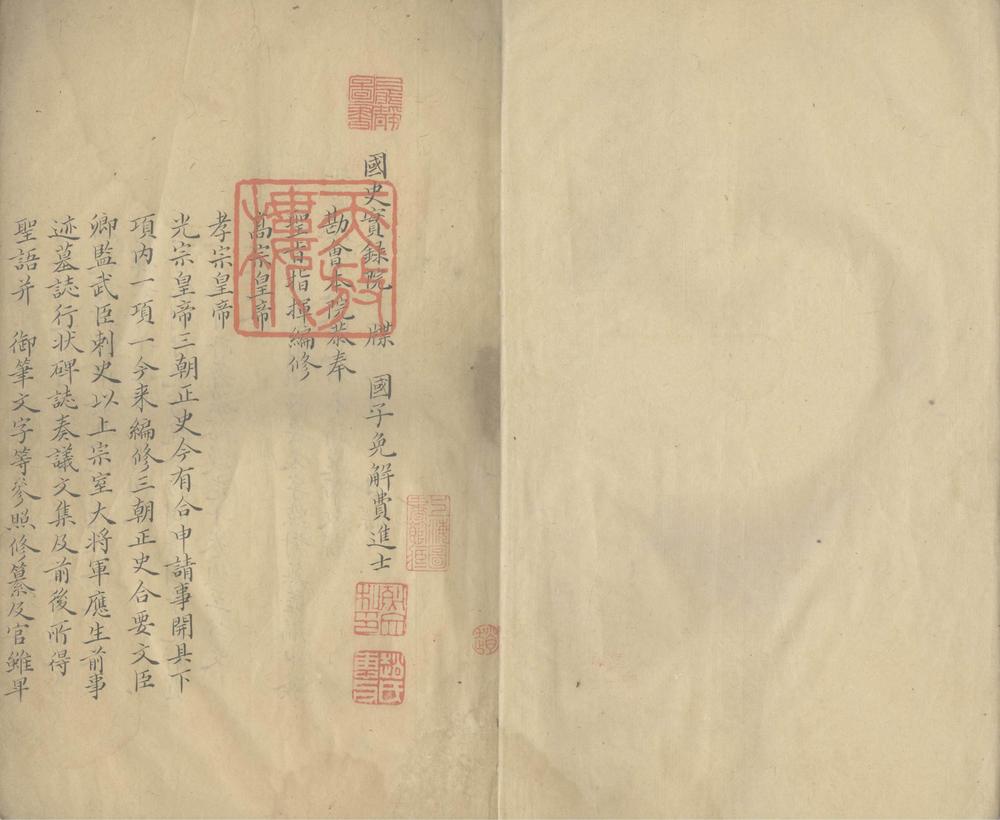 國史實錄院 牒 國子免解費進士
勘會本院恭奉
聖旨指揮編修
髙宗皇帝
孝宗皇帝
光宗皇帝三朝正史今有合申請事開具下
項内一項一今来編修三朝正史合要文臣
卿監武臣刺史以上宗室大将軍應生前事
迹墓誌行状碑誌奏議文集及前後所得
聖語并 御筆文字等參照修纂及官雖卑
天放樓
趙
趙氏